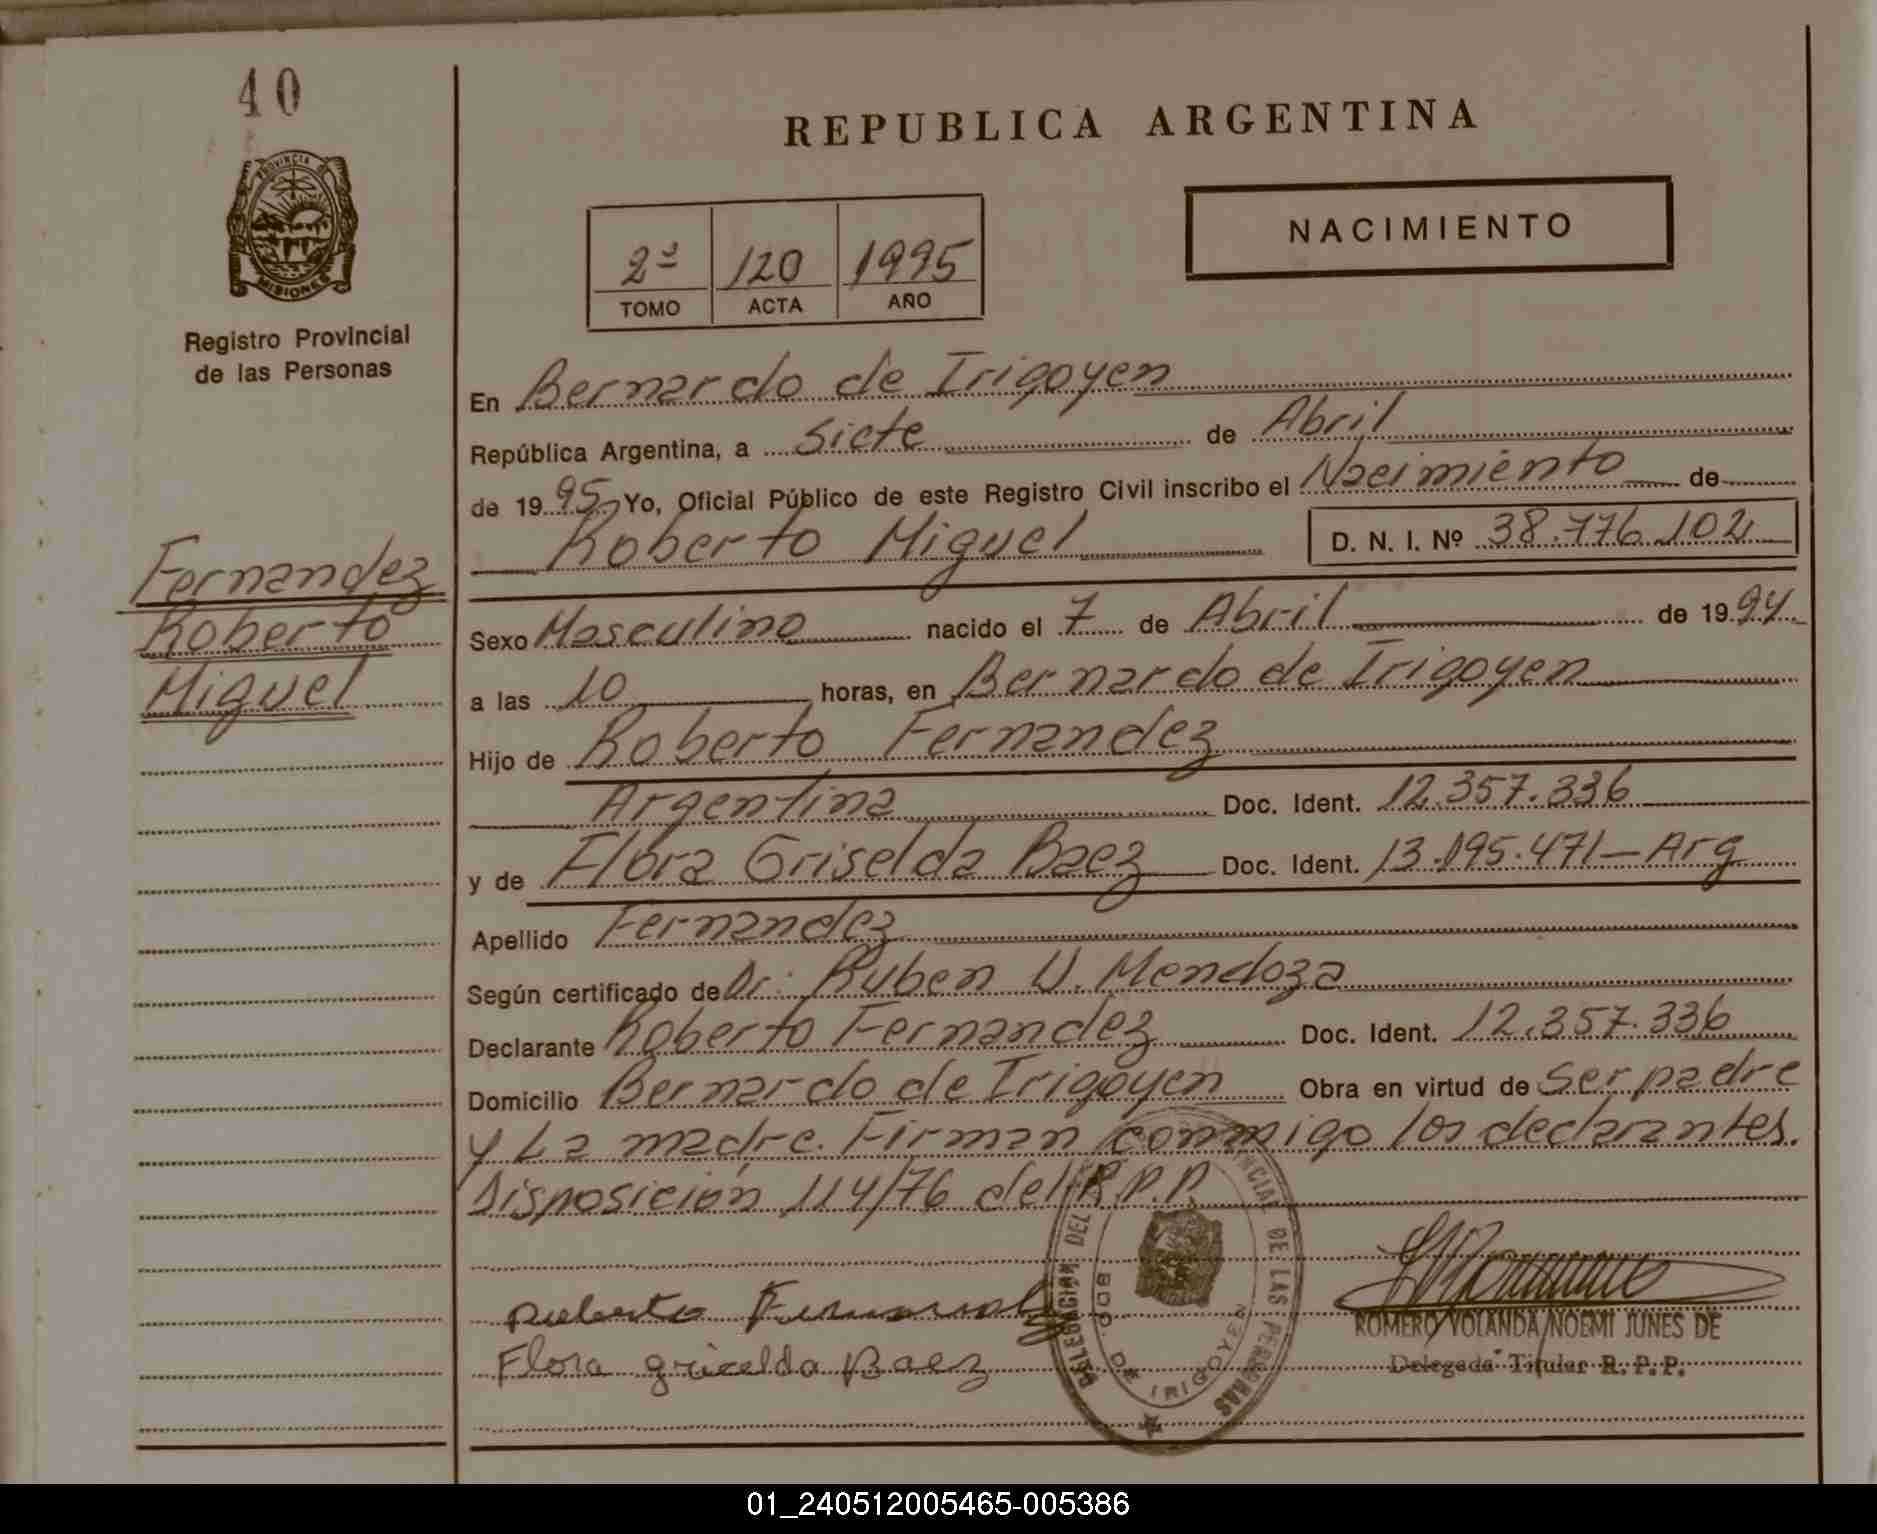 40
REPUBLICA ARGENTINA
PROVINCIA DE
MISIONES
NACIMIENTO
2ª 120 1995
TOMO ACTA AÑO
Registro Provincial
de las Personas
Fernandez
Roberto
Miguel
En Bernardo de Irigoyen
República Argentina, a Siete de Abril
de 1995 Yo, Oficial Público de este Registro Civil inscribo el Nacimiento de
Roberto Miguel D. N. I. Nº 38.776.102
Sexo Masculino nacido el 7 de Abril de 1994
a las 10 horas, en Bernardo de Irigoyen
Hijo de Roberto Fernandez
Argentina Doc. Ident. 12.357.336
y de Flora Griselda Baez Doc. Ident. 13.195.471-Arg
Apellido Fernandez
Según certificado de Dr. Ruben V. Mendoza
Declarante Roberto Fernandez Doc. Ident. 12.357.336
Domicilio Bernardo de Irigoyen Obra en virtud de Ser padre
y La madre. Firman conmigo los declarantes.
Disposición 114/76 del R.P.P.
DELEGACION DEL DE LAS PERSONAS
DE IRIGOYEN
Roberto Fernandez
Flora griselda Baez
ROMERO YOLANDA NOEMI JUNES DE
Delegada Titular R. P. P.
01_240512005465-005386